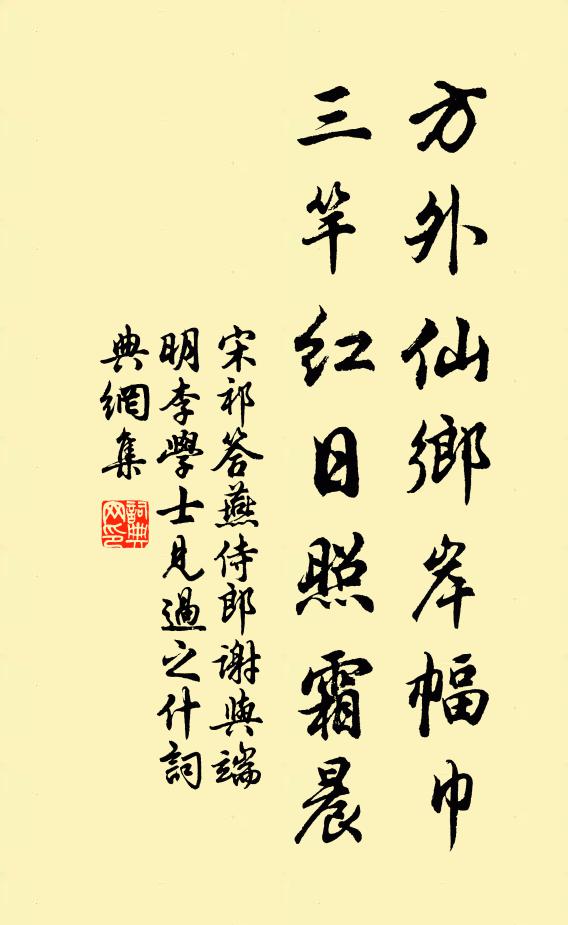 方外仙鄉岸幅巾
三竿紅日照霜晨
宋祁答燕侍郎謝與端
明李學士見過之什詞
典網集
詞典
网印